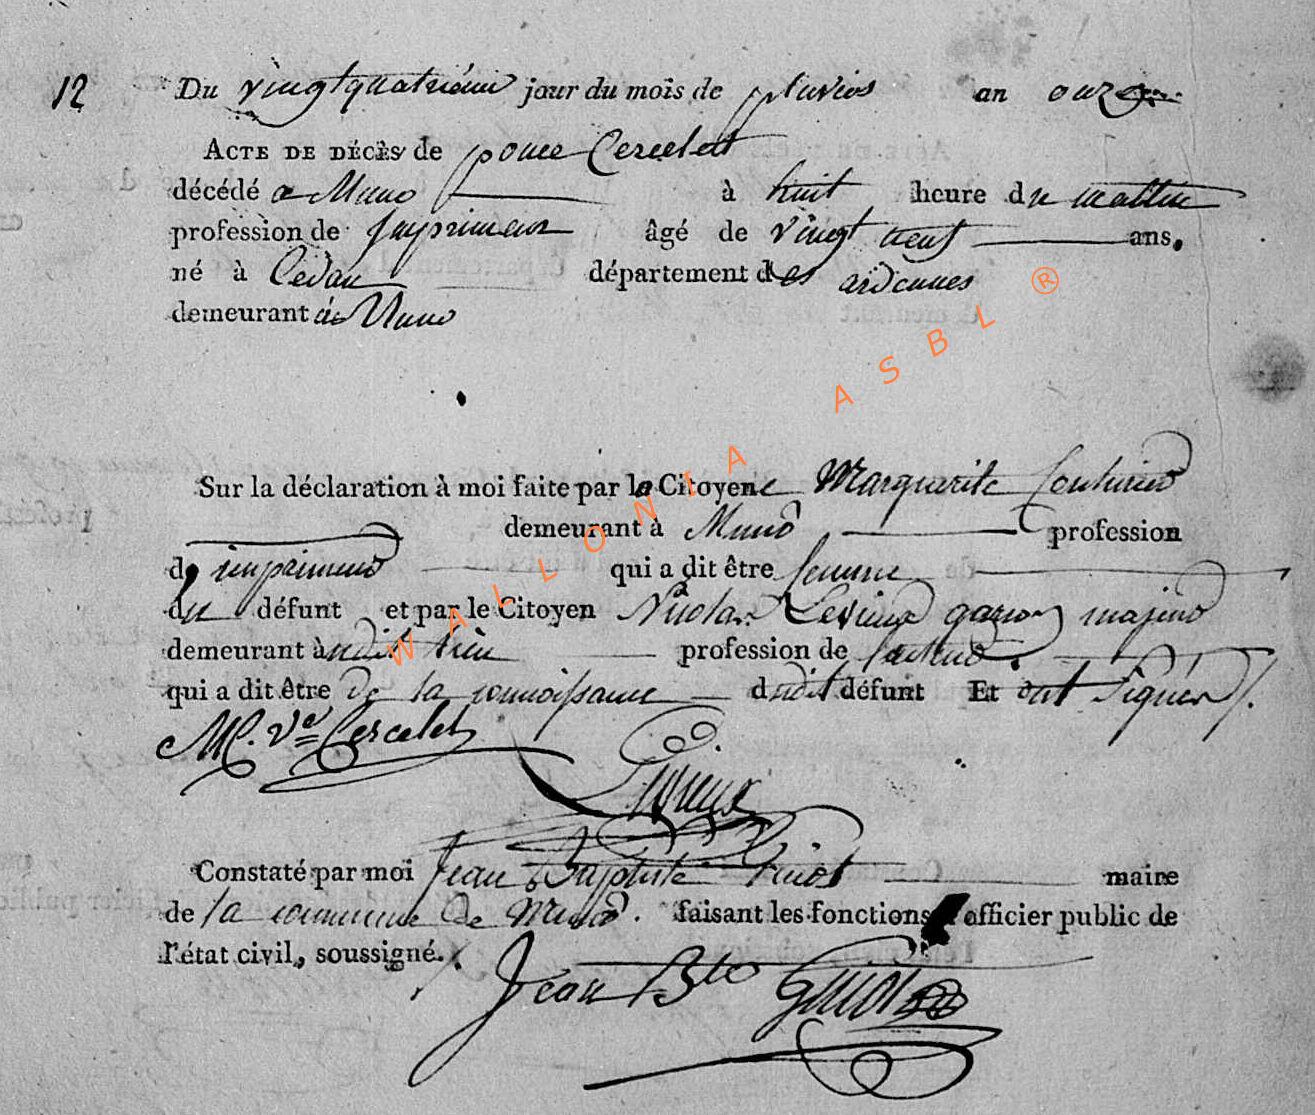 12 Du vingtquatriéme jour du mois de pluvios an onze
ACTE DE DÉCÈS de ponce Cercelet
décédé a Muno à huit heure du mattin
profession de Imprimeur âgé de vingt neuf ans.
né à Cedan département des ardennes
demeurant à Muno
Sur la déclaration à moi faite par la Citoyenne Marguerite
demeurant à Muno profession
d imprimeur qui a dit être femme
du défunt et par le Citoyen Nicolas garson majeur
demeurant audit lieu profession de
qui a dit être de la connoissance dudit défunt Et ont signér
M. Ve Cercelet
Constaté par moi Jean Baptiste Guiot maire
de la commune de Muno. faisant les fonctions officier public de
l'état civil, soussigné.
Jean Bte Guiot
WALLONIA ASBL ®